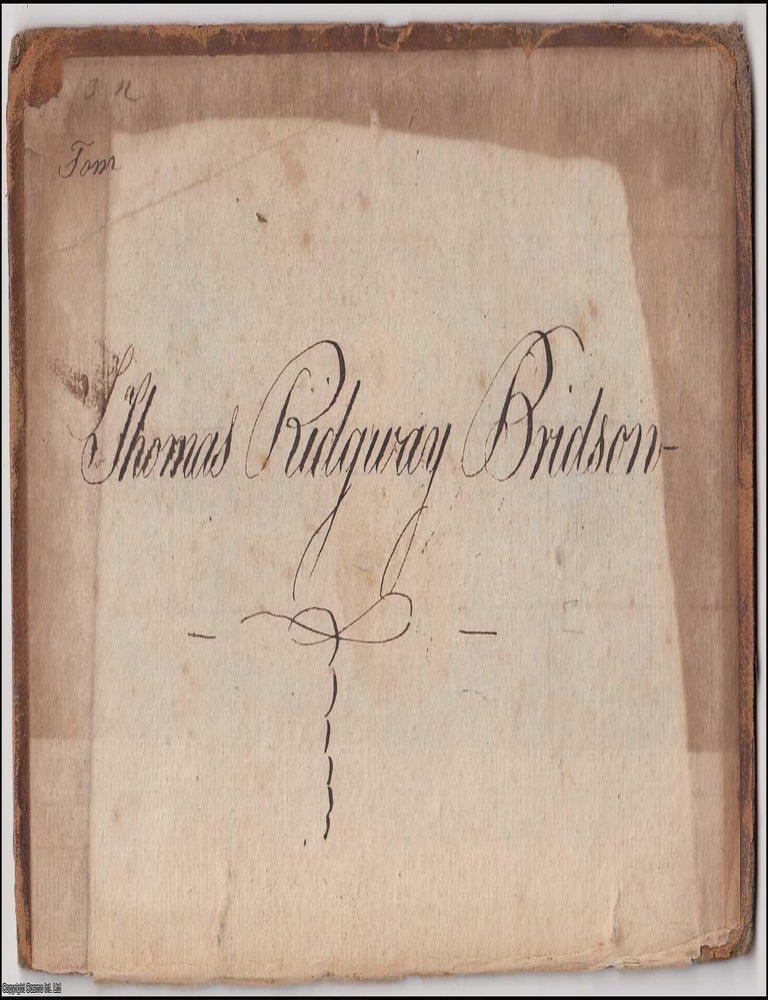 3 n
Tom
Thomas Ridgway Bridson
Copyright Cosmo Int. Ltd